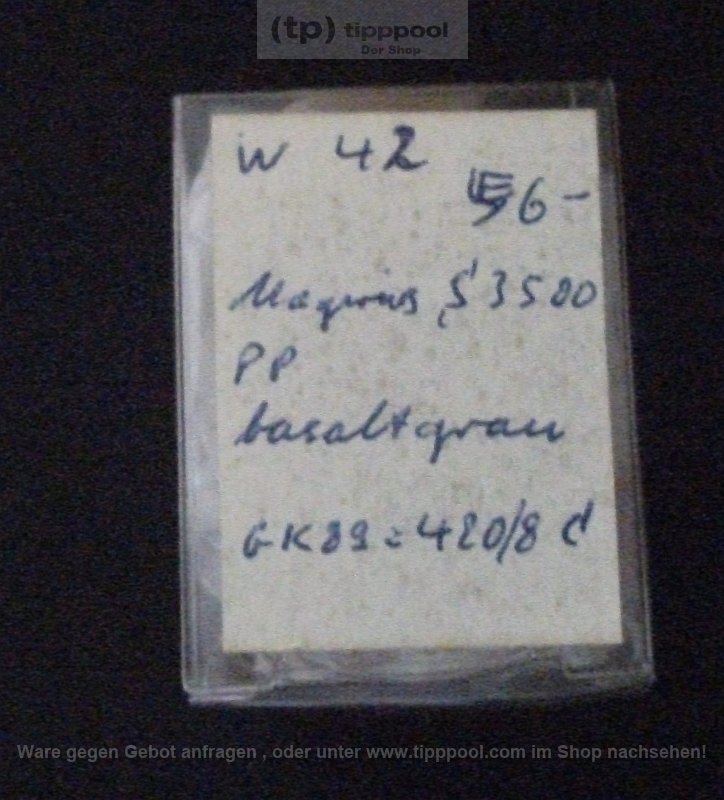 (tp) tipppool
Der Shop
W 42
56-
Magirus S 3500
PP
basaltgrau
GK 89 = 420/8 d
Ware gegen Gebot anfragen , oder unter www.tipppool.com im Shop nachsehen!